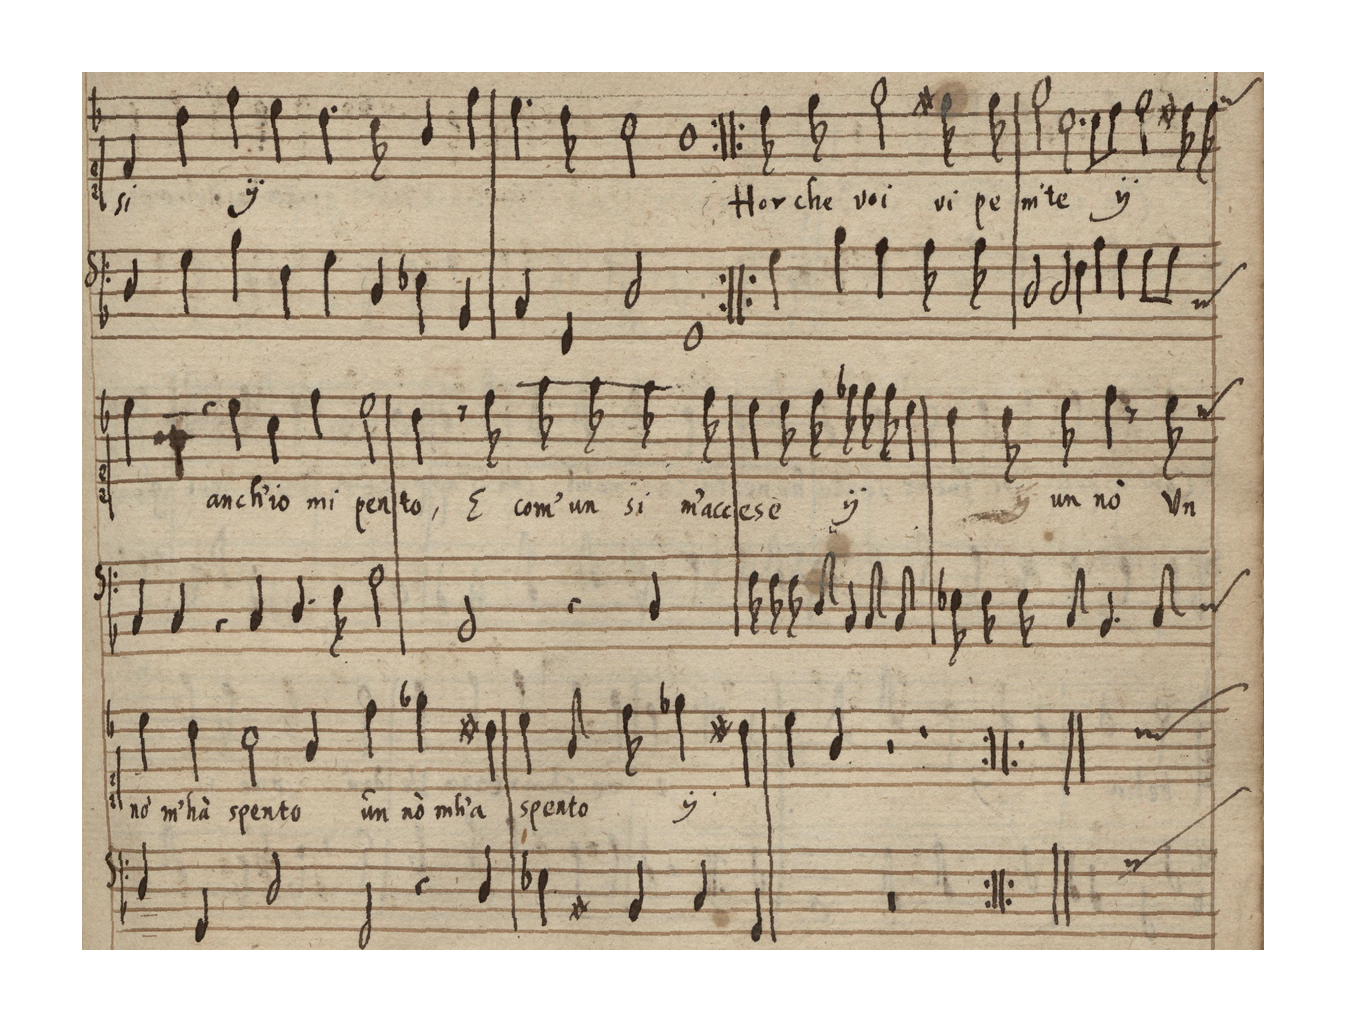 si ij Hor che voi vi pe m'te ij
anch'io mi pento, E com' un si m'accese ij un nò Vn
nò m'hà spento ūn nò mh'a spento ij